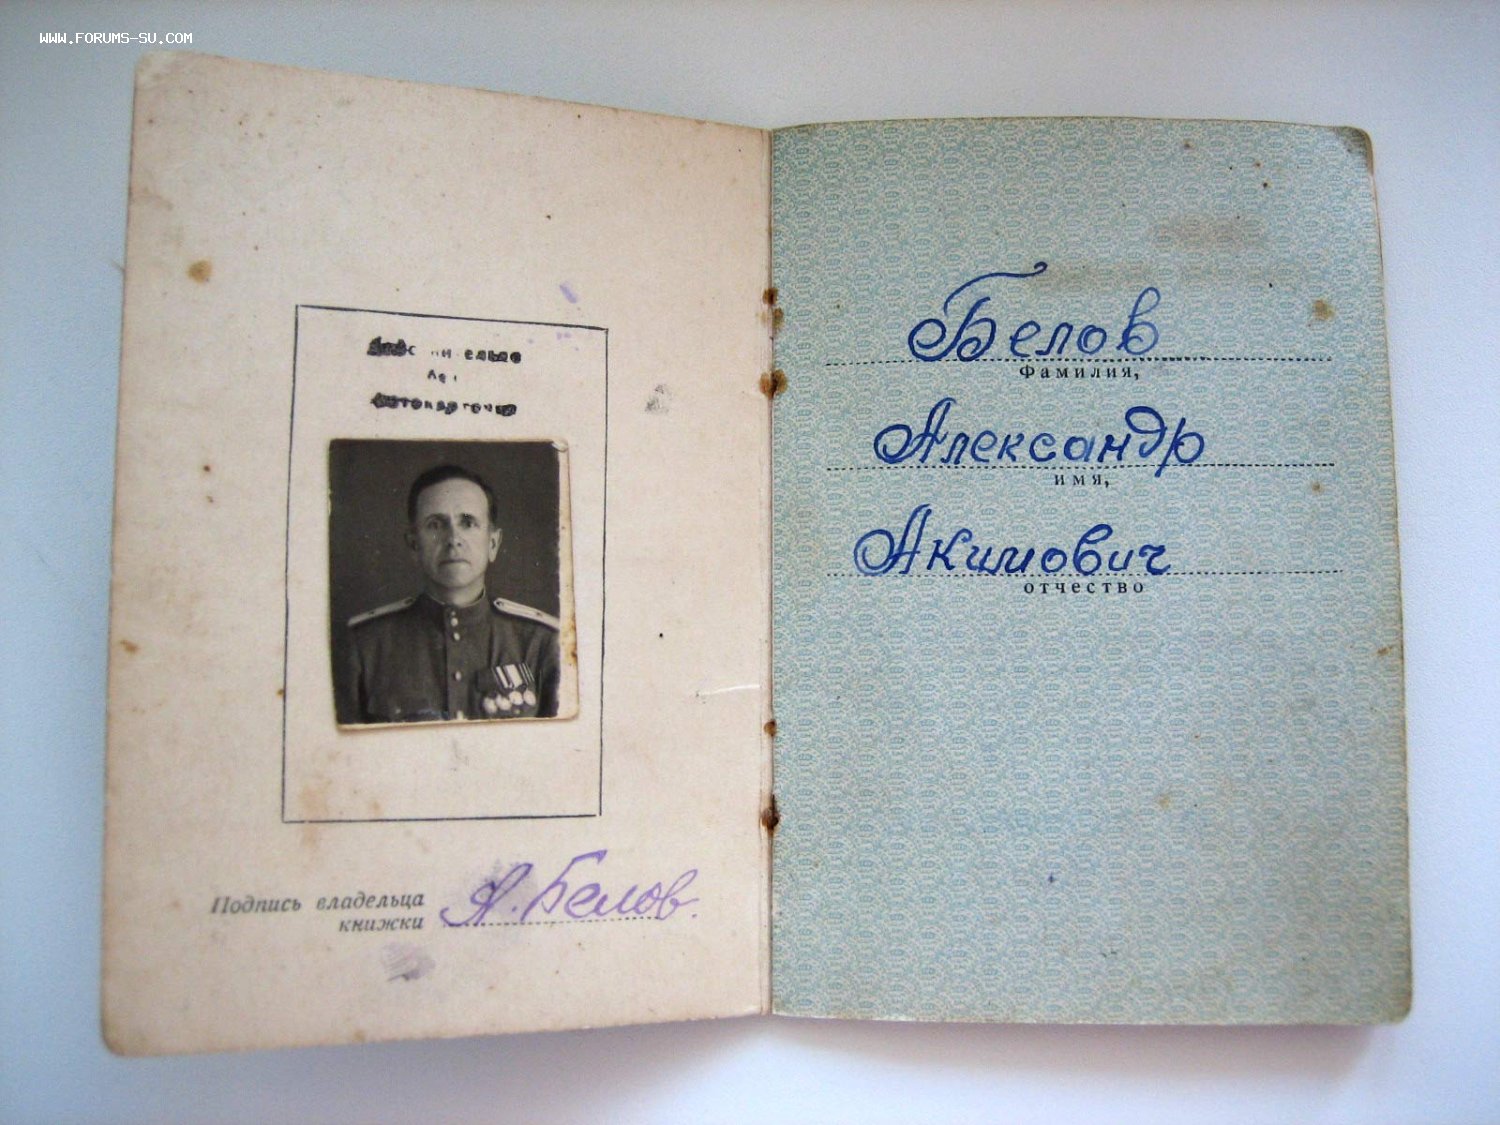 WWW.FORUMS-SU.COM
Подпись владельца
книжки
А. Белов.
Белов
Фамилия,
Александр
имя,
Акимович
отчество